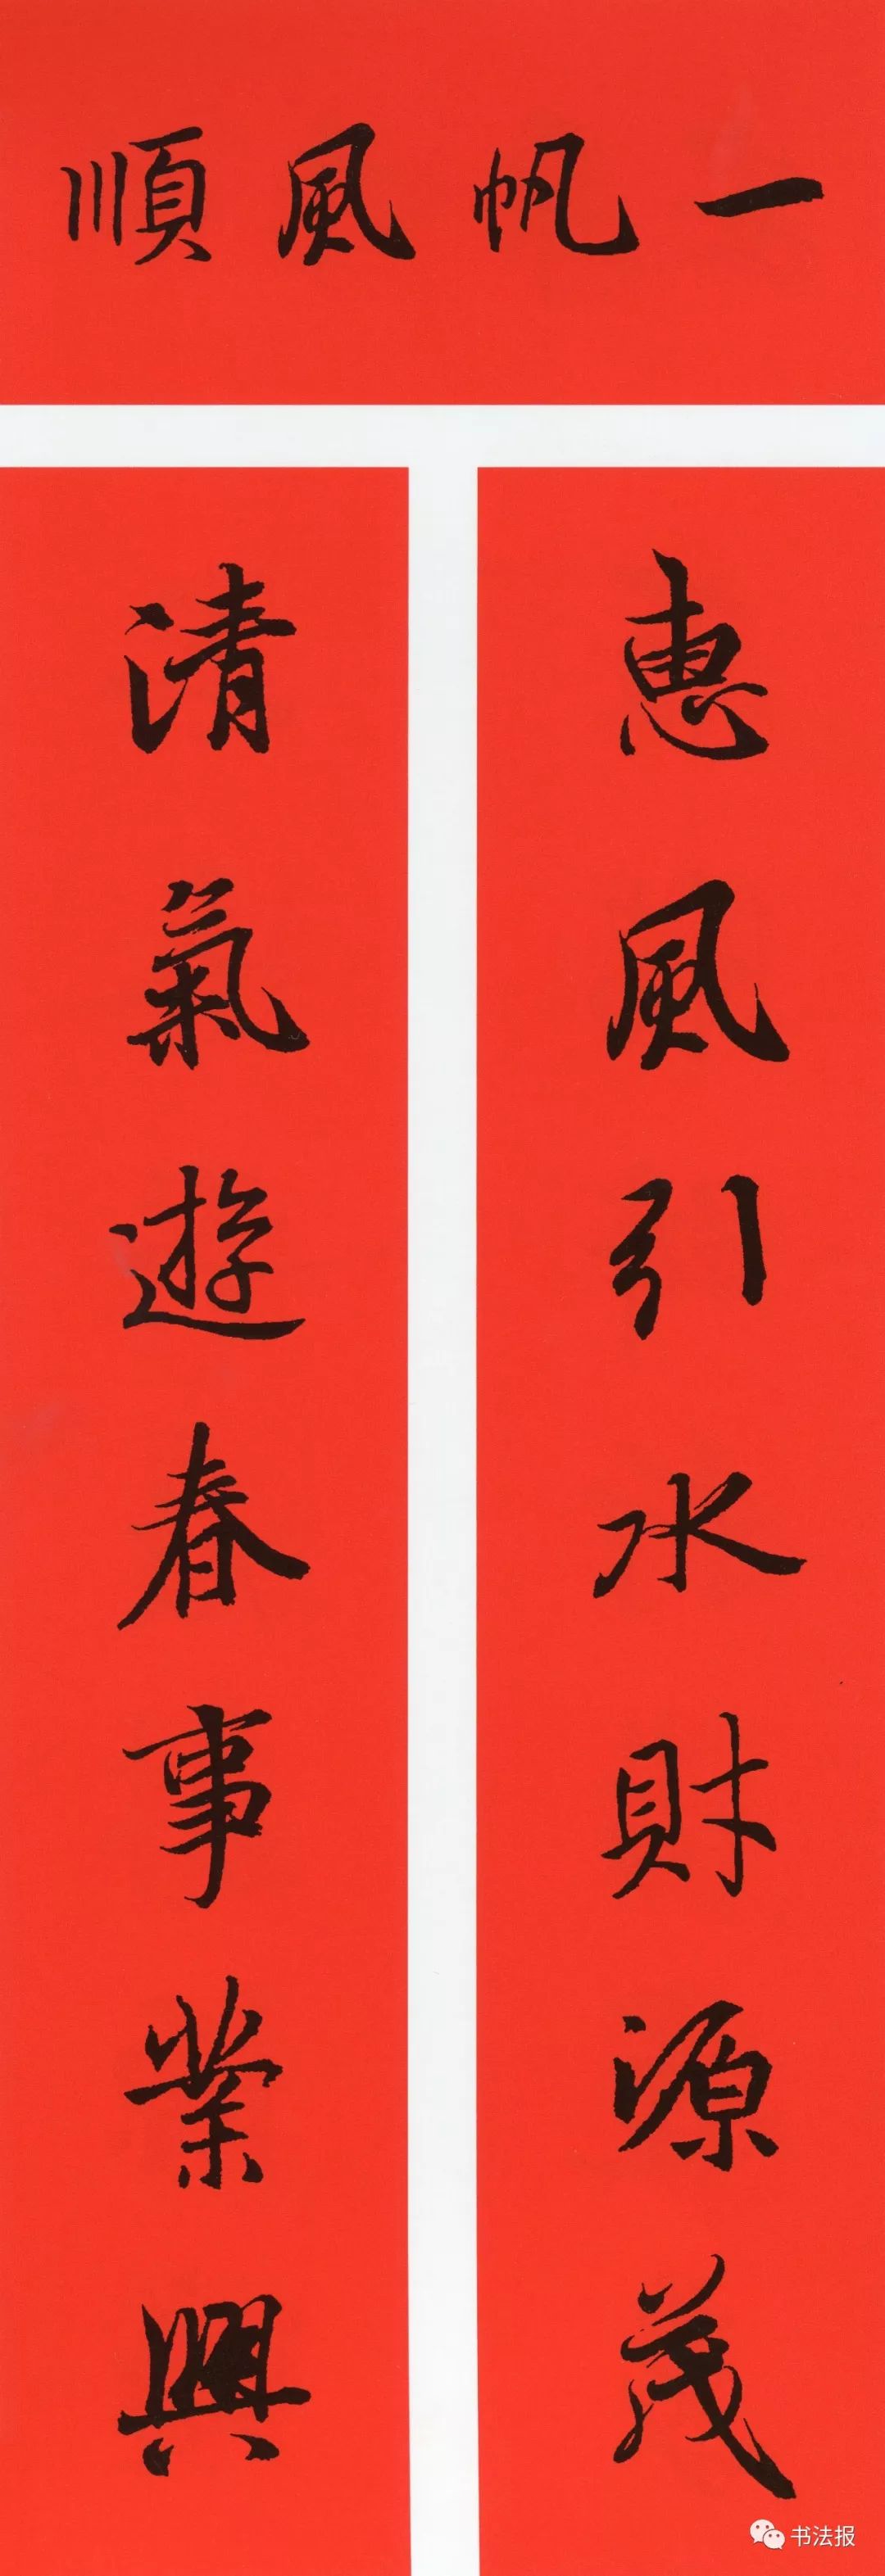 一帆風順
惠風引水財源茂
清氣遊春事業興
书法报